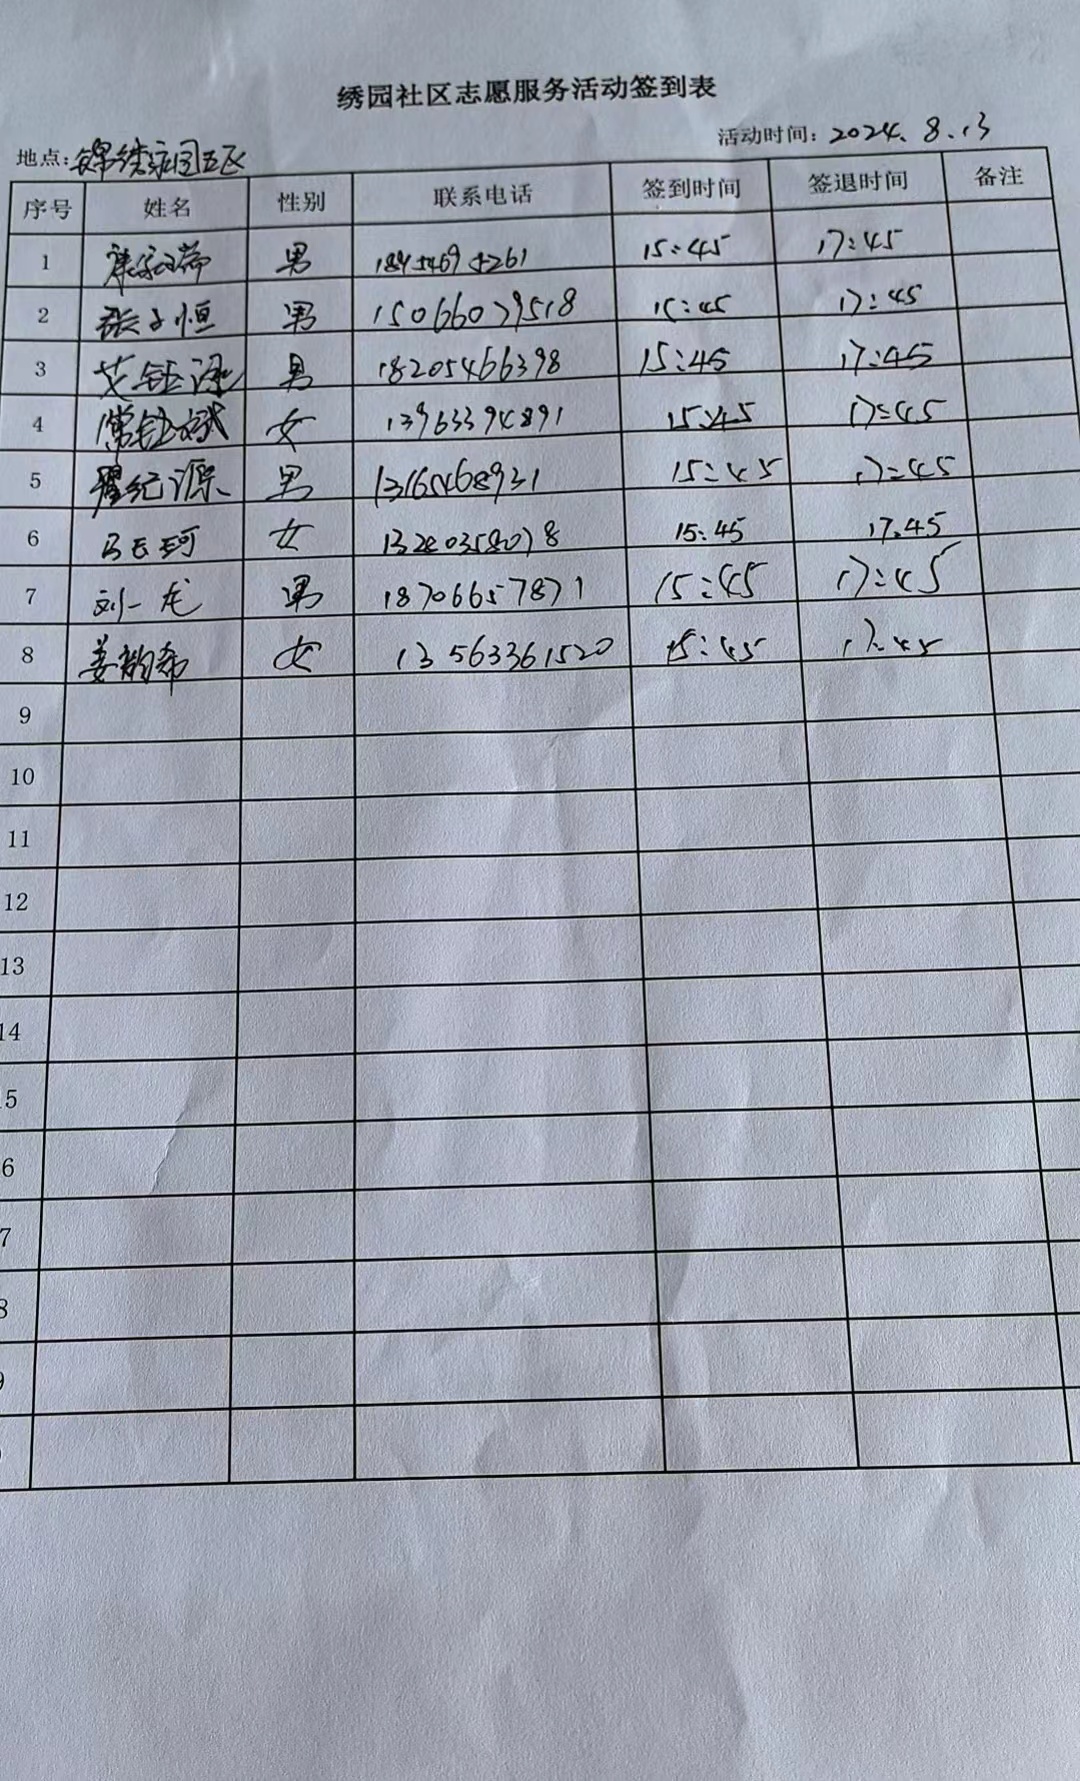 绣园社区志愿服务活动签到表
地点: 锦绣家园五区 活动时间: 2024.8.13
序号 姓名 性别 联系电话 签到时间 签退时间 备注
1 男 15:45 17:45
2 张子恒 男 15066079518 15:45 17:45
3 男 18205466398 15:45 17:45
4 女 13963394891 15:45 17:45
5 翟纪源 男 15:45 17:45
6 女 15:45 17.45
7 刘一龙 男 18706657871 15:45 17:45
8 姜韵希 女 13563361520 15:45 17:45
9
10
11
12
13
14
5
6
7
8
9